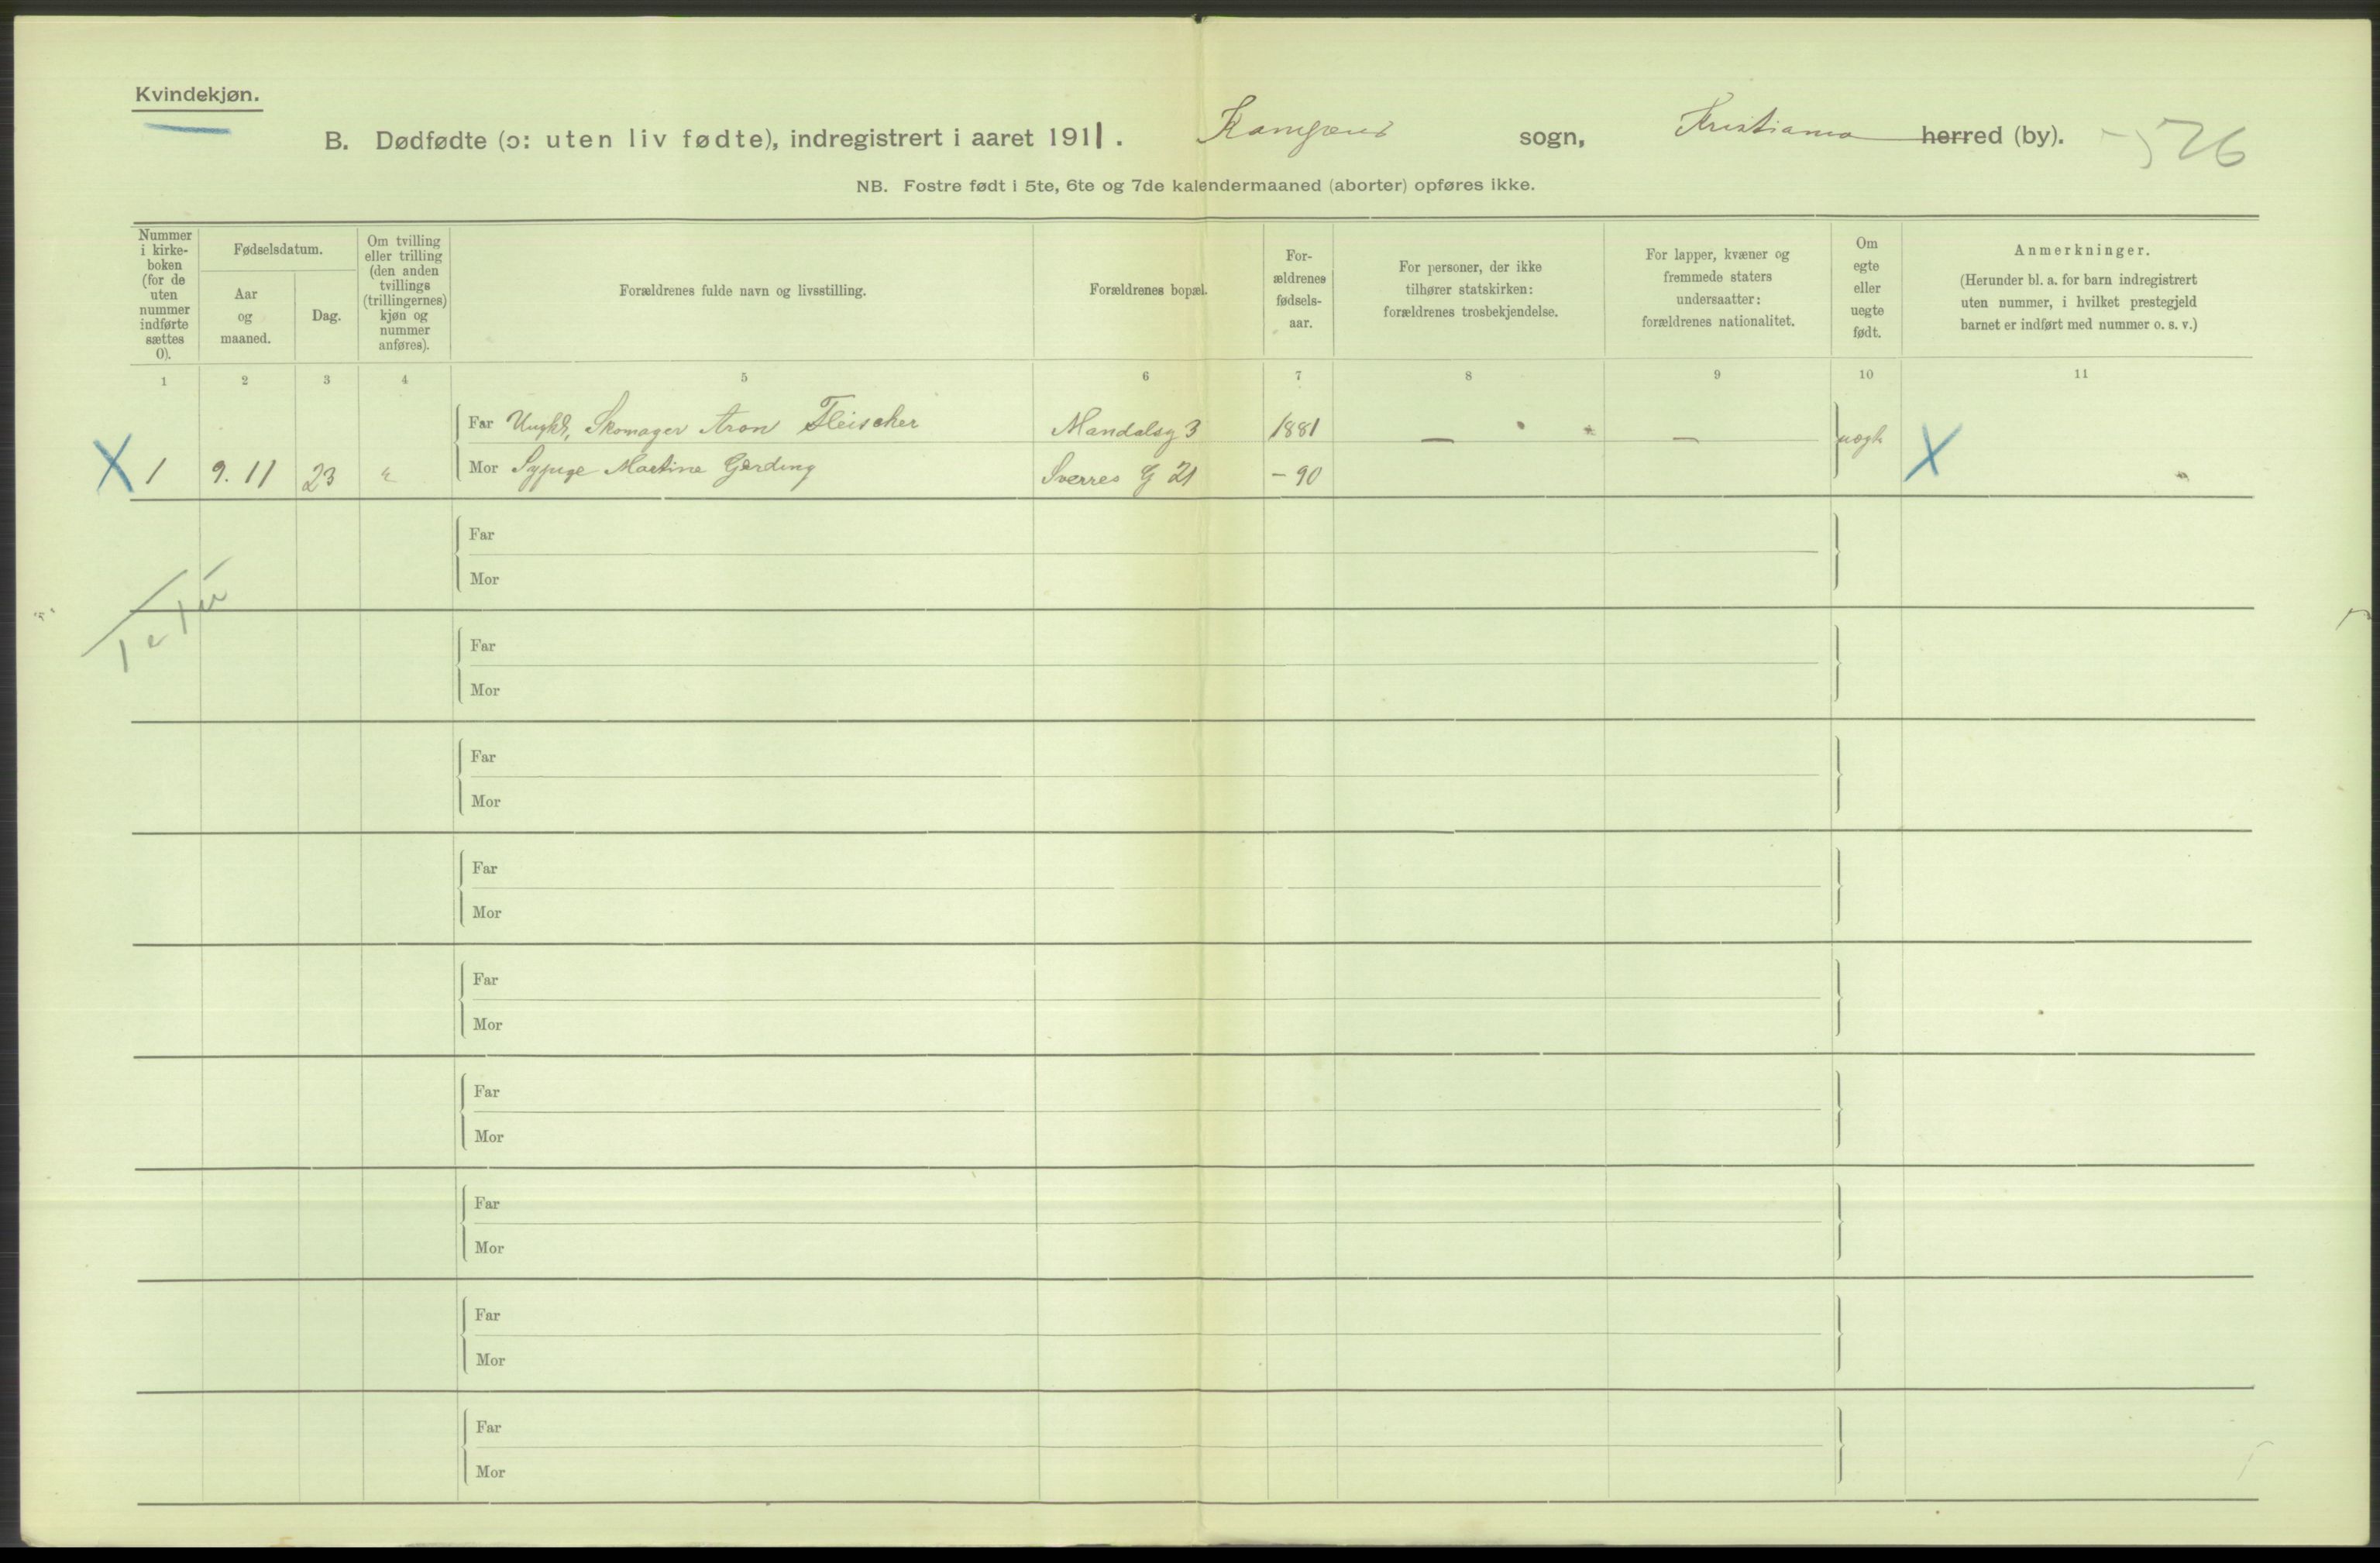 Kvindekjøn.
B. Dødfødte (ɔ: uten liv fødte), indregistrert i aaret 1911. Kampens sogn, Kristiania herred (by). 526
NB. Fostre født i 5te, 6te og 7de kalendermaaned (aborter) opføres ikke.
Nummer i kirke-
boken
(for de
uten
nummer
indførte
sættes
0).
Fødselsdatum.
Aar
og
maaned.
Dag.
Om tvilling
eller trilling
(den anden
tvillings
(trillingernes)
kjøn og
nummer
anføres).
Forældrenes fulde navn og livsstilling.
Forældrenes bopæl.
For-
ældrenes
fødsels-
aar.
For personer, der ikke
tilhører statskirken:
forældrenes trosbekjendelse.
For lapper, kvæner og
fremmede staters
undersaatter:
forældrenes nationalitet.
Om
egte
eller
uegte
født.
Anmerkninger.
(Herunder bl. a. for barn indregistrert
uten nummer, i hvilket prestegjeld
barnet er indført med nummer o. s. v.)
1 2 3 4 5 6 7 8 9 10 11
Far Ungkl, Skomager Aron Fleischer Mandalsg 3 1881 — — uegte
X 1 9. 11 23 " Mor Sypige Martine Gerding Sverres G 21 - 90 X
Far
Mor
Far
Mor
Far
Mor
Far
Mor
Far
Mor
Far
Mor
Far
Mor
Far
Mor
Far
Mor